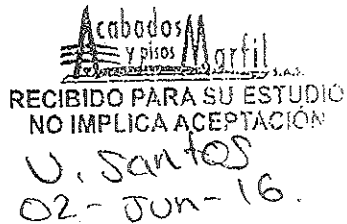 Acabados
y pisos Marfil
S.A.S.
RECIBIDO PARA SU ESTUDIO
NO IMPLICA ACEPTACIÓN
U. Santos
02-Jun-16.